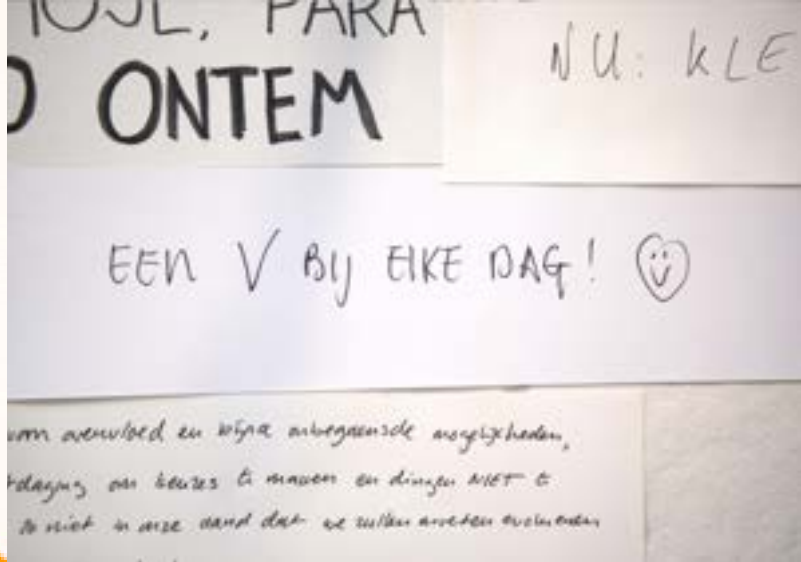 HOJE, PARA
O ONTEM
NU: KLE
EEN V BIJ ELKE DAG!
van overvloed en bijna onbegrensde mogelijkheden,
om keuzes te maken en dingen NIET te
niet in onze aard dat we zullen moeten evolueren